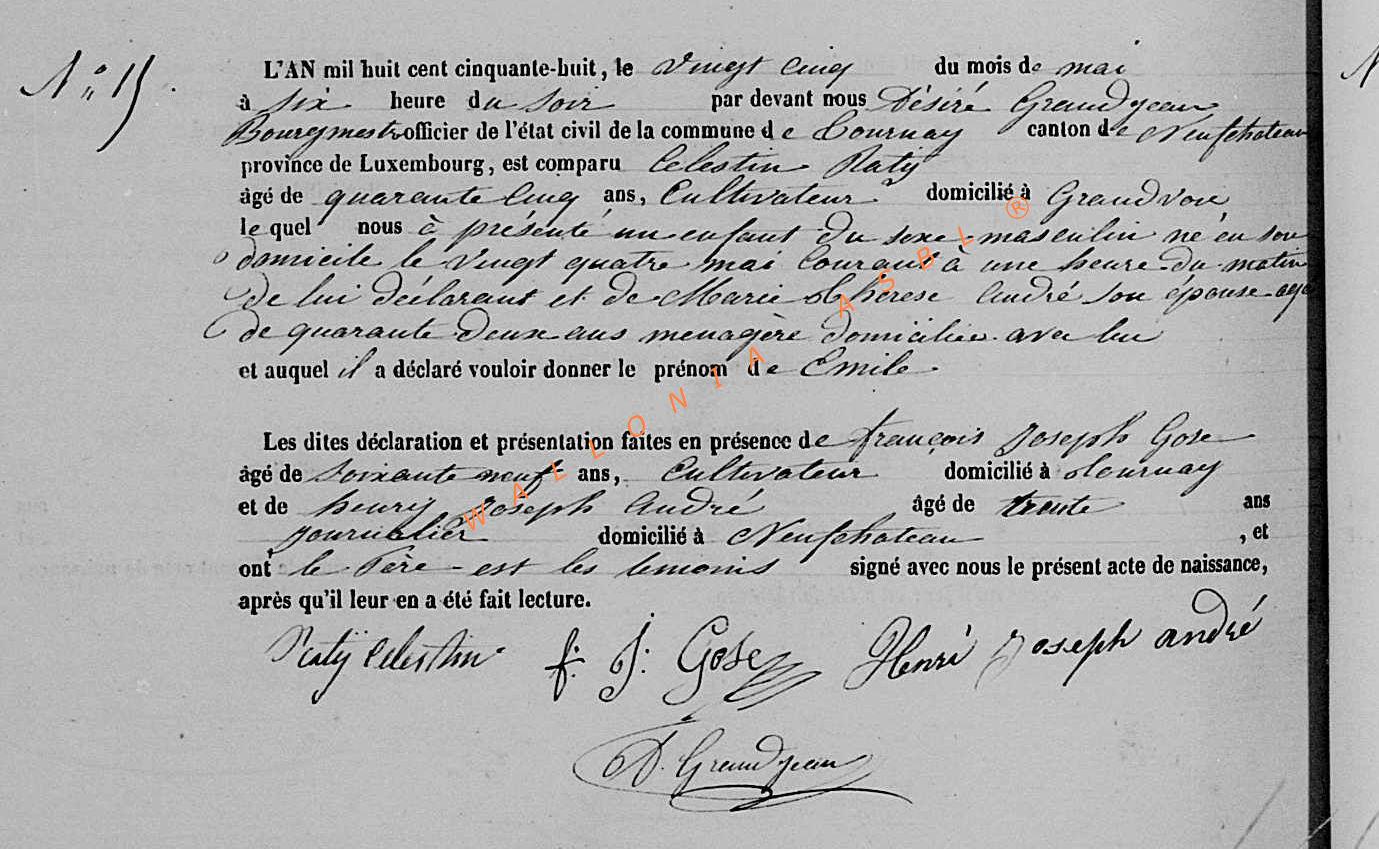 N° 15.
L'AN mil huit cent cinquante-huit, le vingt cinq du mois de mai
à six heure du soir par devant nous Désiré Grandjean
Bourgmestre officier de l'état civil de la commune de Tournay canton de Neufchateau
province de Luxembourg, est comparu Celestin Raty
âgé de quarante cinq ans, Cultivateur domicilié à Grandvoir
le quel nous à présenté un enfant du sexe masculin né en son
domicile le vingt quatre mai courant à une heure du matin
de lui déclarant et de Marie Thérese André son épouse agée
de quarante deux ans menagère domiciliée avec lui
et auquel il a déclaré vouloir donner le prénom de Emile.
Les dites déclaration et présentation faites en présence de françois Joseph Gose
âgé de soixante neuf ans, Cultivateur domicilié à tournay
et de henry Joseph André âgé de trente ans
journalier domicilié à Neufchateau , et
ont le Père est les temoins signé avec nous le présent acte de naissance,
après qu'il leur en a été fait lecture.
Raty Celestin f. J. Gose Henri Joseph andré
D. Grandjean
WALLONIA ASBL ®